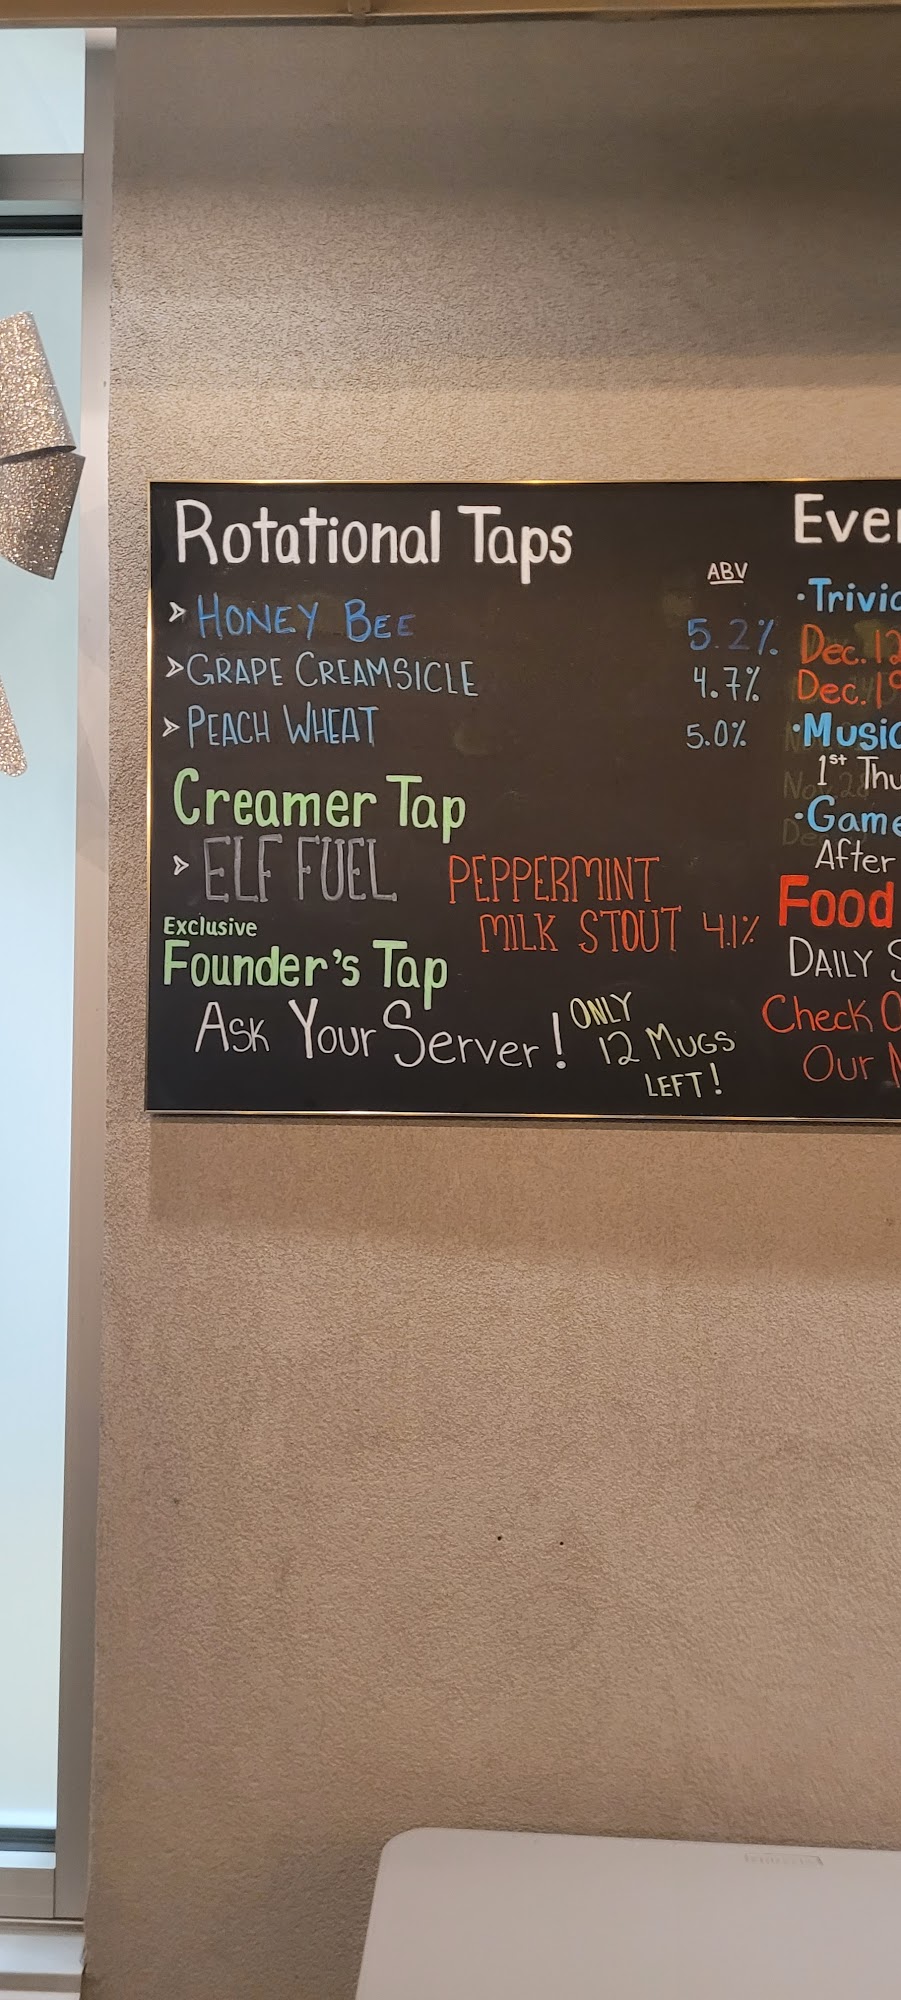 Rotational Taps
ABV
HONEY BEE 5.2%
GRAPE CREAMSICLE 4.7%
PEACH WHEAT 5.0%
Creamer Tap
ELF FUEL PEPPERMINT
MILK STOUT 4.1%
Exclusive
Founder's Tap
Ask Your Server! ONLY
12 MUGS
LEFT!
Dec. 12
Dec. 19
1st
After
Food
DAILY
Check
Our